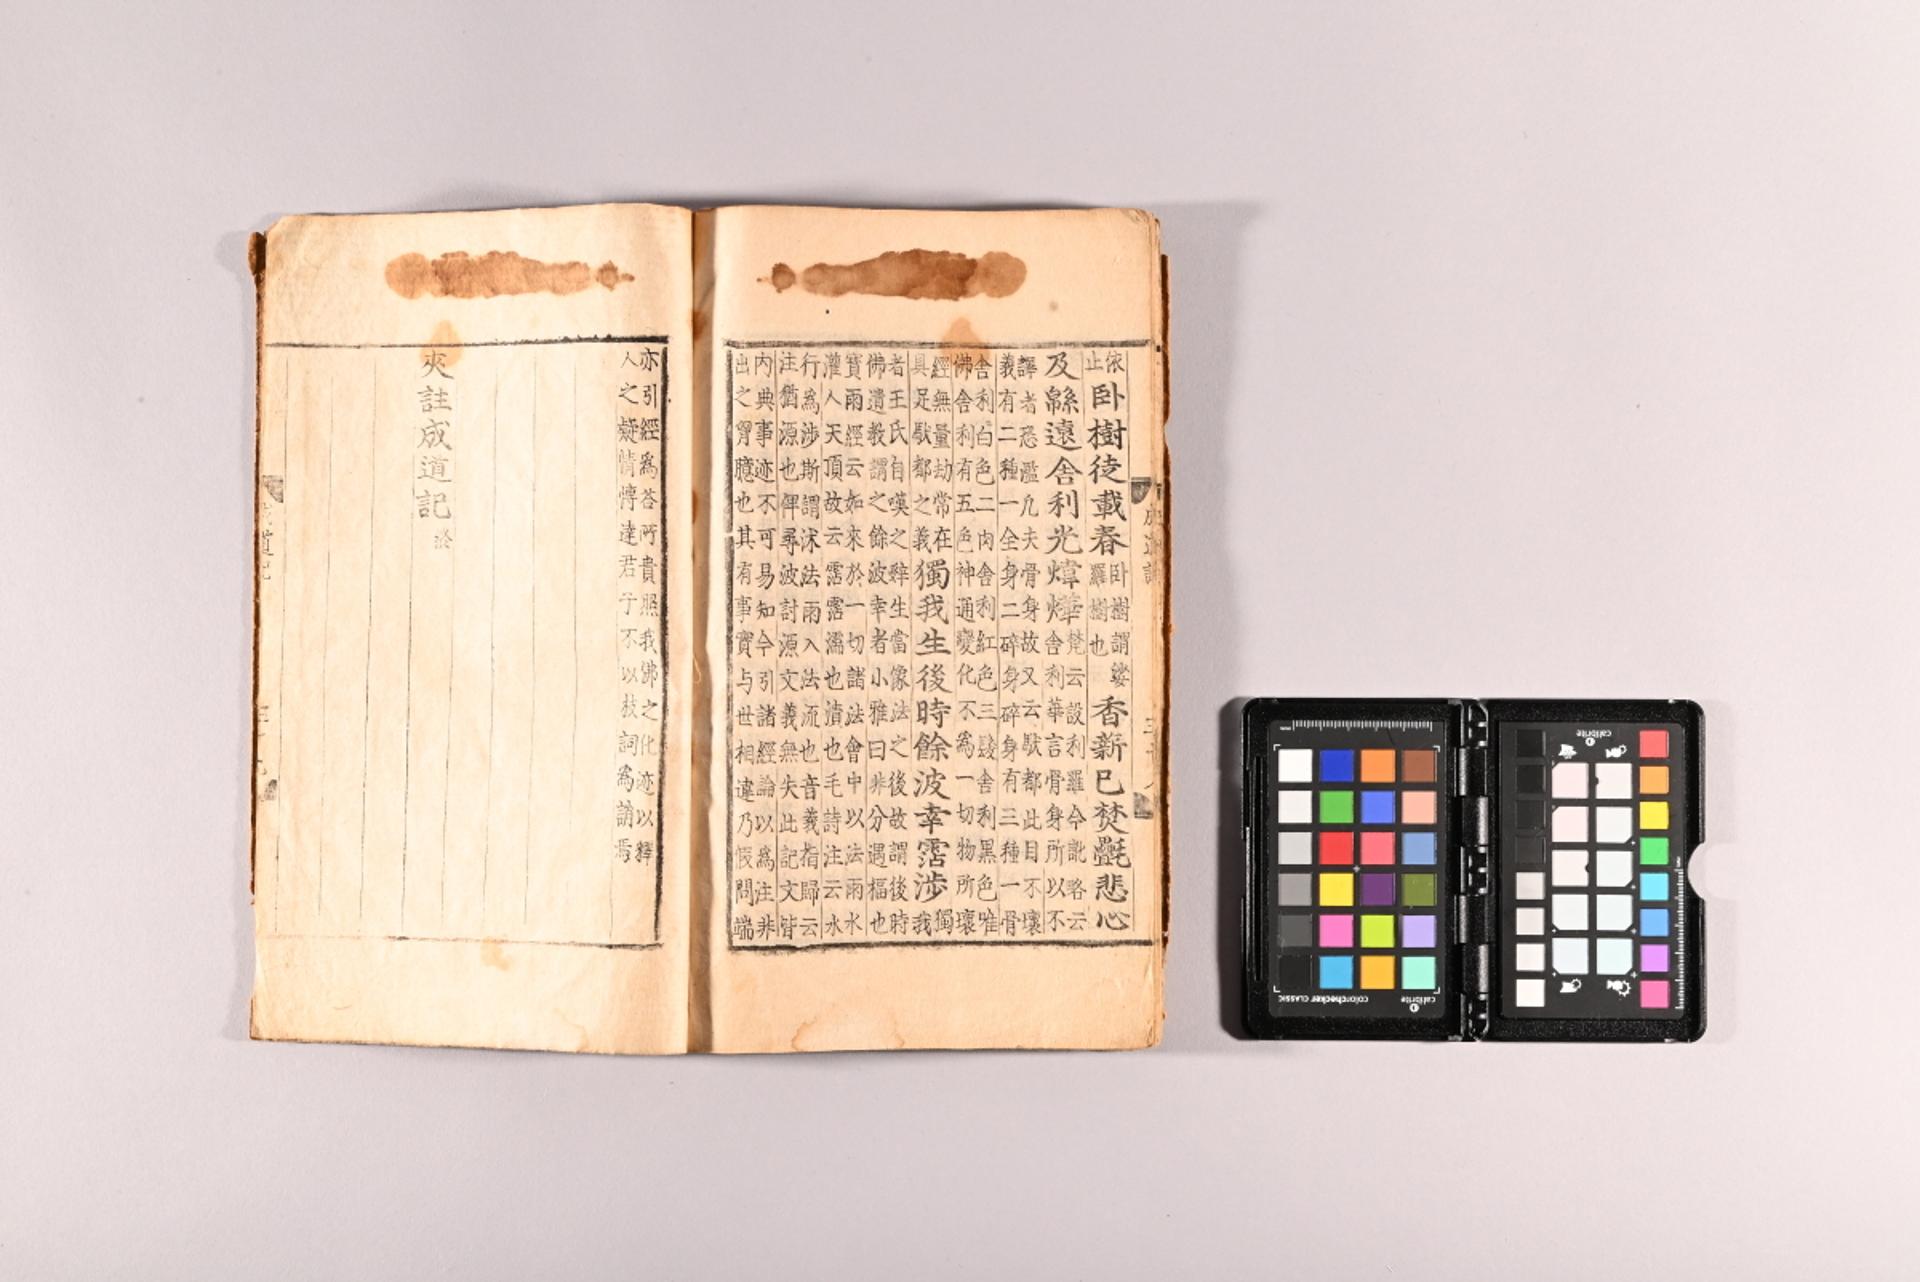 依
止
臥樹徒載春
臥樹謂娑
羅樹也
香薪已焚㲲悲心
及緜遠舍利光煒燁
梵云設利羅今訛略云
舍利華言骨身所以不
譯者恐濫凡夫骨身故又云䭾都此目不壞
義有二種一全身二碎身碎身有三種一骨
舍利白色二肉舍利紅色三髮舍利黑色唯
佛舍利有五色神通變化不為一切物所壞
經無量劫常在
具足䭾都之義
獨我生後時餘波幸霑涉
獨
我
者王氏自嘆之辤生當像法之後故謂後時
佛遺教謂之餘波幸者小雅曰非分遇福也
寶雨經云如來於一切諸法會中以法雨水
灌人天頂故云霑霑濡也漬也毛詩注云水
行為涉斯謂沭法雨入法流也音義指歸云
注猶源也俾尋波討源文義無失此記文皆
內典事迹不可易知今引諸經論以為注非
出之胷臆也其有事實与世相違乃假問端
亦引經為荅所貴照我佛之化迹以釋
人之疑情慱達君子不以枝詞為誚焉
夾註成道記 終
成道記
calibrite
colorchecker CLASSIC
calibrite